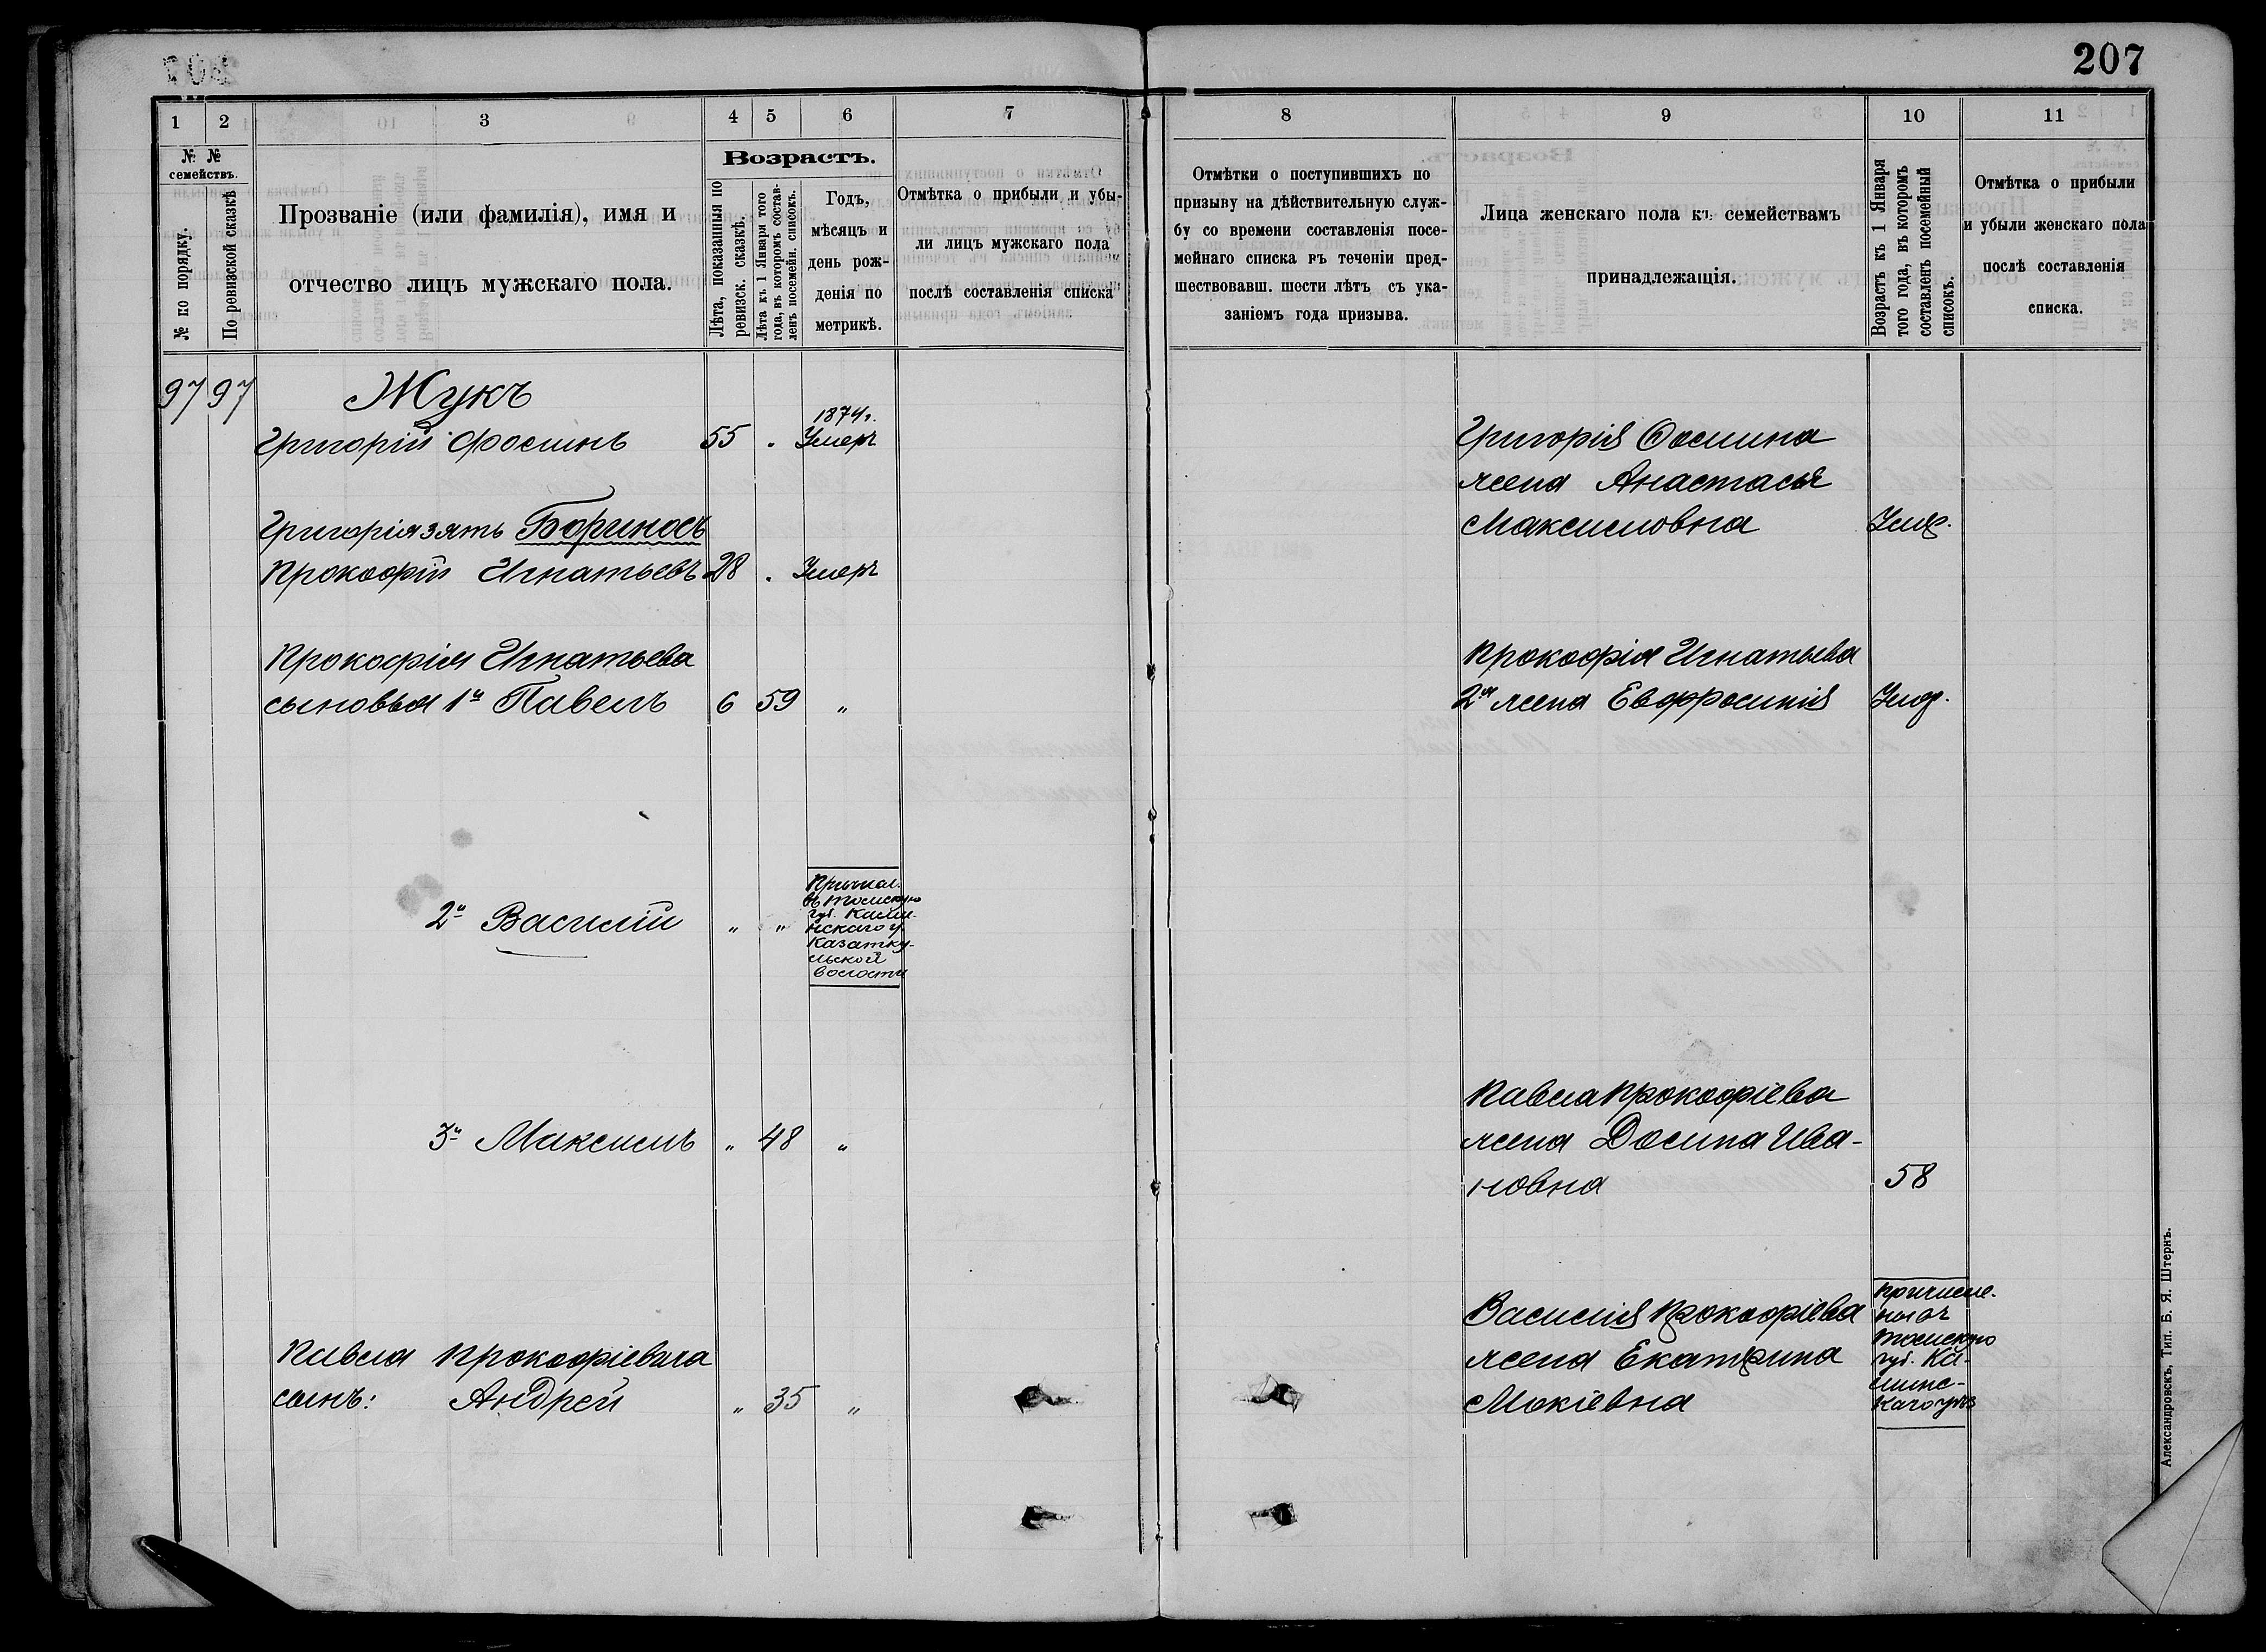 207
1 2 3 4 5 6 7
№ № семействъ.
№ по порядку.
По ревизской сказкѣ
Прозваніе (или фамилія), имя и
отчество лицъ мужскаго пола.
Возрастъ.
Лѣта, показанныя по
ревизск. сказкѣ.
Лѣта къ 1 Января того
года, въ которомъ состав-
ленъ посемейн. списокъ.
Годъ,
мѣсяцъ и
день рож-
денія по
метрикѣ.
Отмѣтка о прибыли и убы-
ли лицъ мужскаго пола
послѣ составленія списка
97 97 Жукъ
1874г.
Григорій Фоминъ 55 . Умеръ
Григорія зять
Прокофій Игнатьевъ 28 . Умеръ
Прокофія Игнатьева
сыновья 1й Павелъ 6 59 "
2й Василій " "
Причисл.
въ Томскую
губ. Каин-
скаго у.
Казатку-
льской
волости
3й Максимъ " 48 "
Павла Прокофіевича
сынъ: Андрей " 35 "
8 9 10 11
Отмѣтки о поступившихъ по
призыву на дѣйствительную служ-
бу со времени составленія посе-
мейнаго списка въ теченіи пред-
шествовавш. шести лѣтъ съ ука-
заніемъ года призыва.
Лица женскаго пола къ семействамъ
принадлежащія.
Возрастъ къ 1 Января
того года, въ которомъ
составленъ посемейный
списокъ.
Отмѣтка о прибыли
и убыли женскаго пола
послѣ составленія
списка.
Григорія Фомина
жена Анастасья
Максимовна Умер.
Прокофія Игнатьева
2я жена Евфросинія Умер.
Павла Прокофіева
жена Домна Ива-
новна 58
Василія Прокофіева
жена Екатерина
Мокіевна
причисле-
ны въ
Томскую
губ. Ка-
инс-
каго уѣз
Александровскъ, Тип. Б. Я. Штернъ.